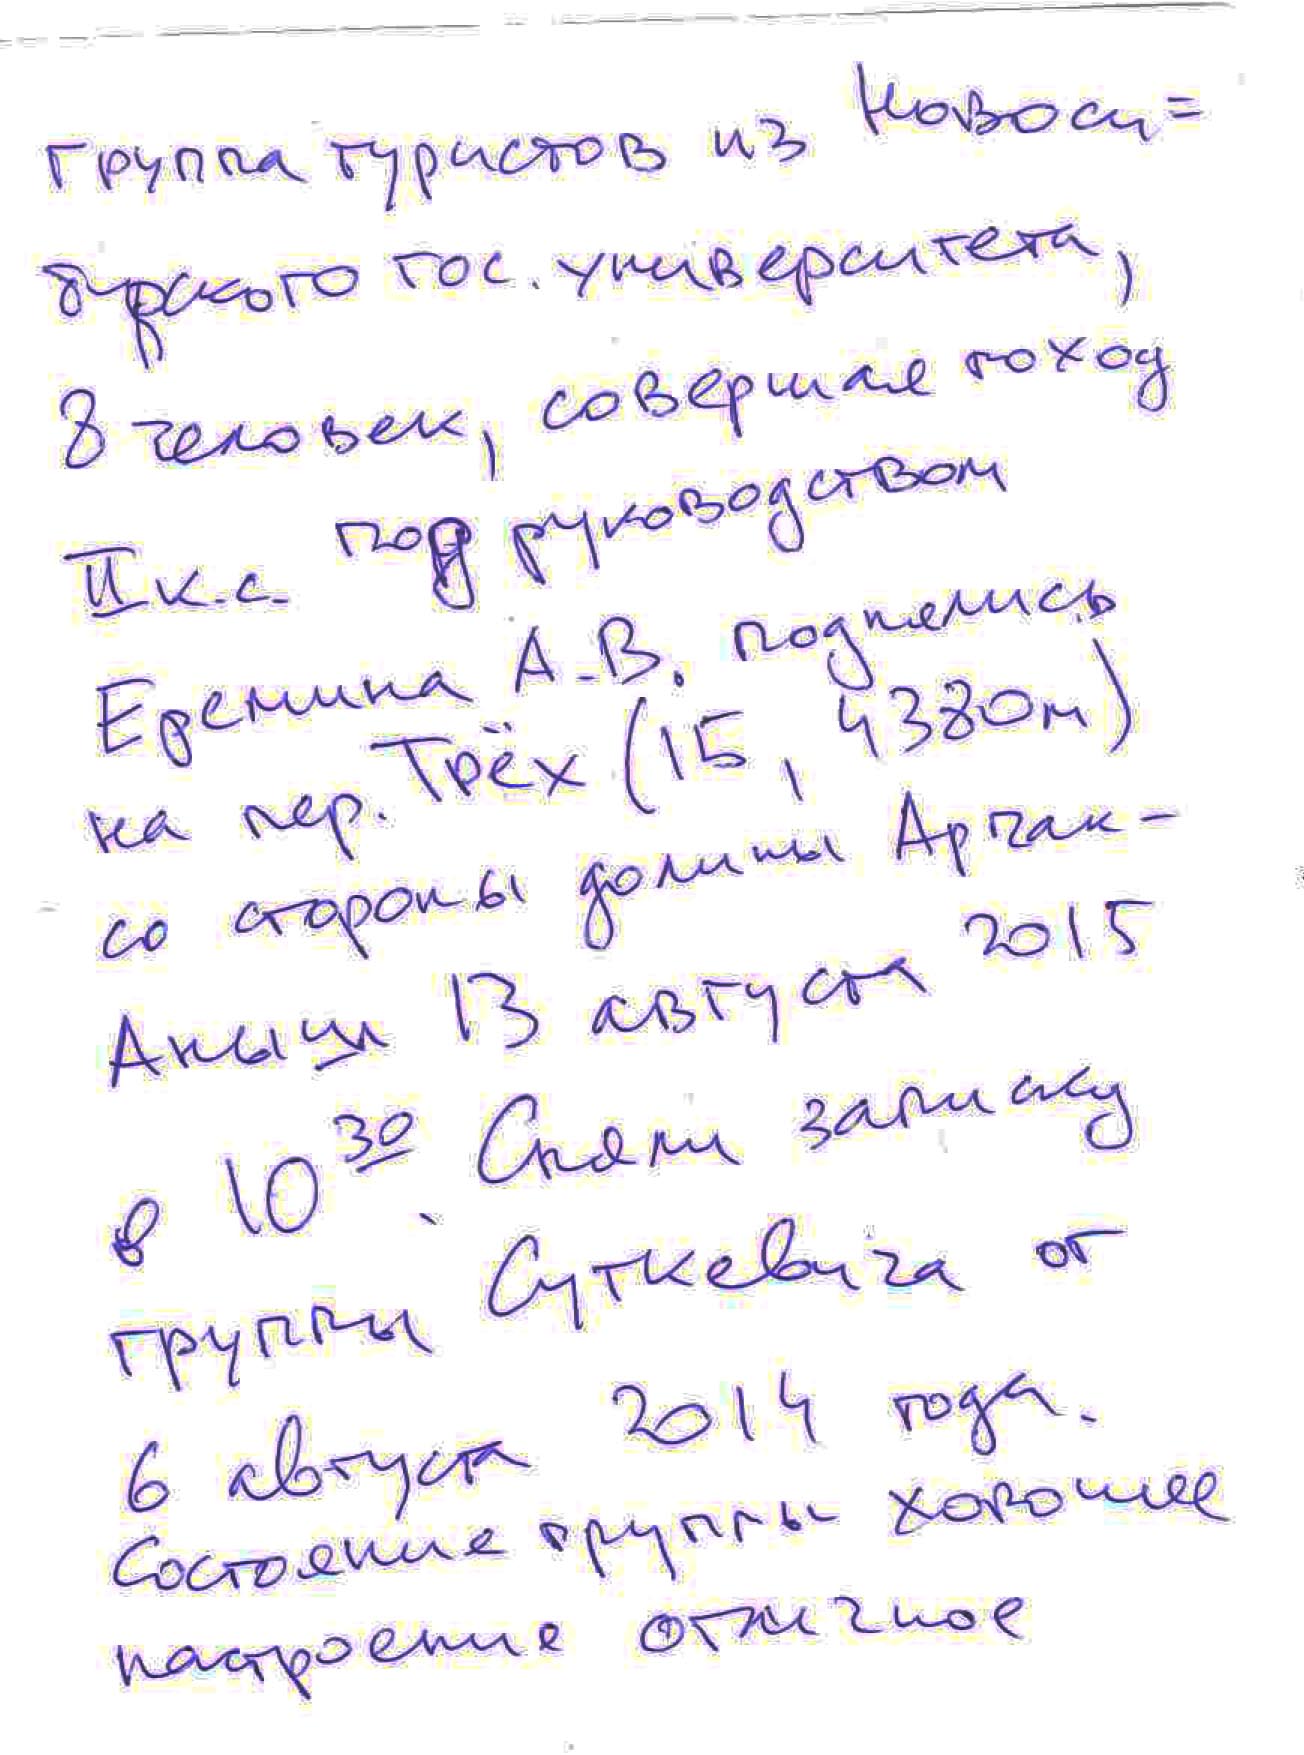 группа туристов из Новоси=
бирского гос. университета,
8 человек, совершая поход
II к.с. под руководством
Еремина А.В. поднялись
на пер. Трёх (1Б, 4380м)
со стороны долины Арчак-
Аныш 13 августа 2015
в 10 30. Сняли записку
группы Суткевича от
6 августа 2014 года.
Состояние группы хорошее
настроение отличное